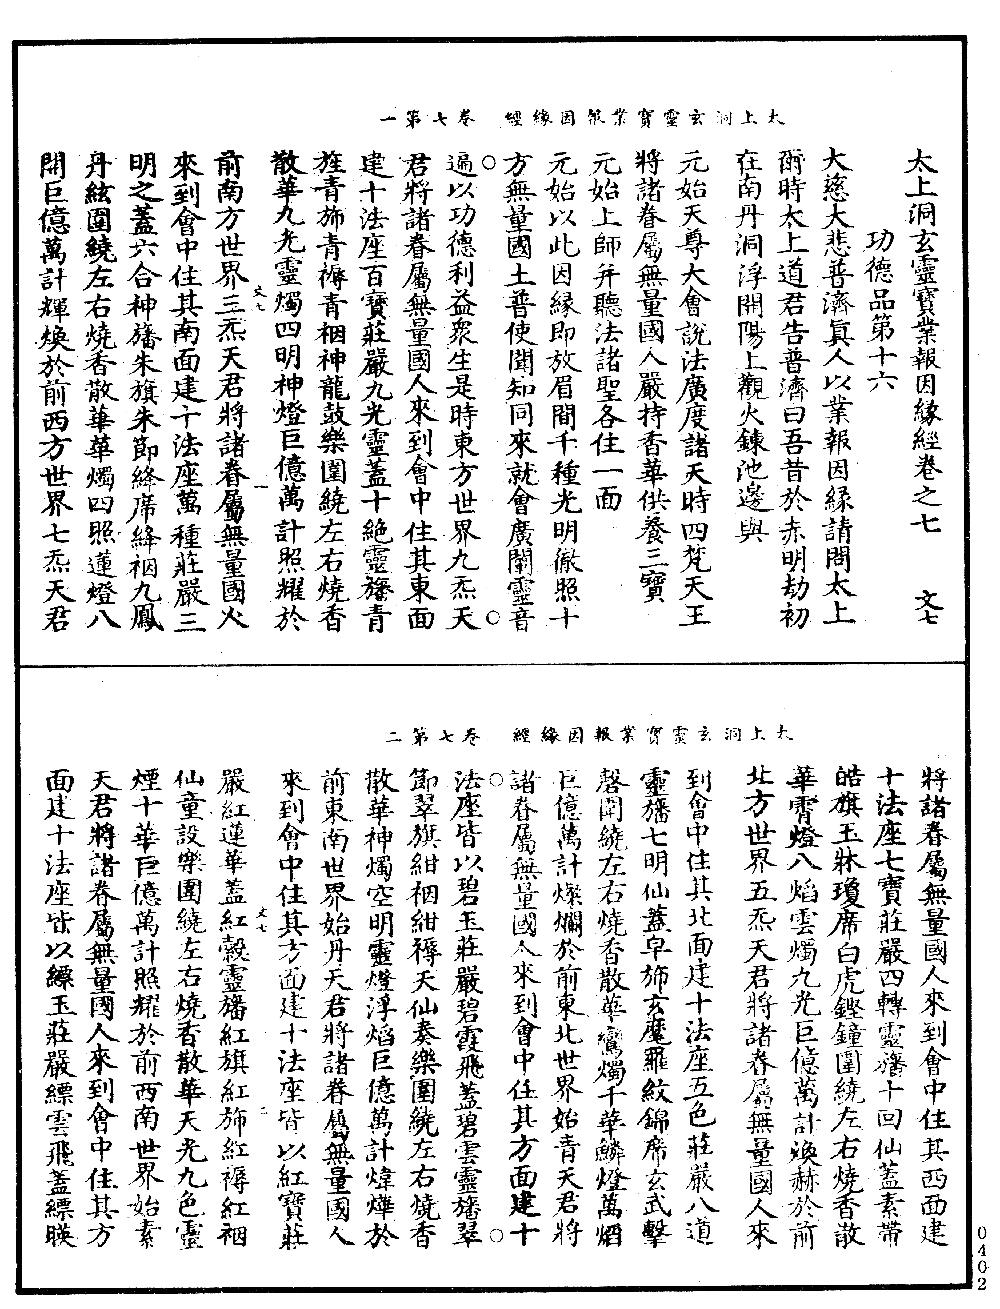 太上洞玄靈寶業報因緣經　卷七第一
太上洞玄靈寶業報因緣經卷之七　文七
功德品第十六
大慈大悲普濟眞人以業報因緣請問太上
爾時太上道君告普濟曰吾昔於赤明劫初
在南丹洞浮開陽上觀火鍊池邊與
元始天尊大會說法廣度諸天時四梵天王
將諸眷屬無量國人嚴持香華供養三寶
元始上師幷聽法諸聖各住一面
元始以此因緣即放眉間千種光明徹照十
方無量國土普使聞知同來就會廣闡靈音
遍以功德利益衆生是時東方世界九炁天
君將諸眷屬無量國人來到會中住其東面
建十法座百寶莊嚴九光靈蓋十絕靈旛青
旌青斾青褥青裀神龍鼓樂圍繞左右燒香
散華九光靈燭四明神燈巨億萬計照耀於
文七　一
前南方世界三炁天君將諸眷屬無量國人
來到會中住其南面建十法座萬種莊嚴三
明之蓋六合神旛朱旗朱節絳席絳裀九鳳
丹絃圍繞左右燒香散華華燭四照蓮燈八
開巨億萬計輝煥於前西方世界七炁天君
太上洞玄靈寶業報因緣經　卷七第二
將諸眷屬無量國人來到會中住其西面建
十法座七寶莊嚴四轉靈旛十回仙蓋素帶
皓旗玉牀瓊席白虎鏗鐘圍繞左右燒香散
華霄燈八焰雲燭九光巨億萬計煥赫於前
北方世界五炁天君將諸眷屬無量國人來
到會中住其北面建十法座五色莊嚴八道
靈旛七明仙蓋皁斾玄麾羅紋錦席玄武擊
磬圍繞左右燒香散華鸞燭千華鱗燈萬焰
巨億萬計燦爛於前東北世界始青天君將
諸眷屬無量國人來到會中住其方面建十
法座皆以碧玉莊嚴碧霞飛蓋碧雲靈旛翠
節翠旗紺裀紺褥天仙奏樂圍繞左右燒香
散華神燭空明靈燈浮焰巨億萬計煒燁於
前東南世界始丹天君將諸眷屬無量國人
來到會中住其方面建十法座皆以紅寶莊
文七　二
嚴紅蓮華蓋紅縠靈旛紅旗紅斾紅褥紅裀
仙童設樂圍繞左右燒香散華天光九色靈
煙十華巨億萬計照耀於前西南世界始素
天君將諸眷屬無量國人來到會中住其方
面建十法座皆以縹玉莊嚴縹雲飛蓋縹暎
0402